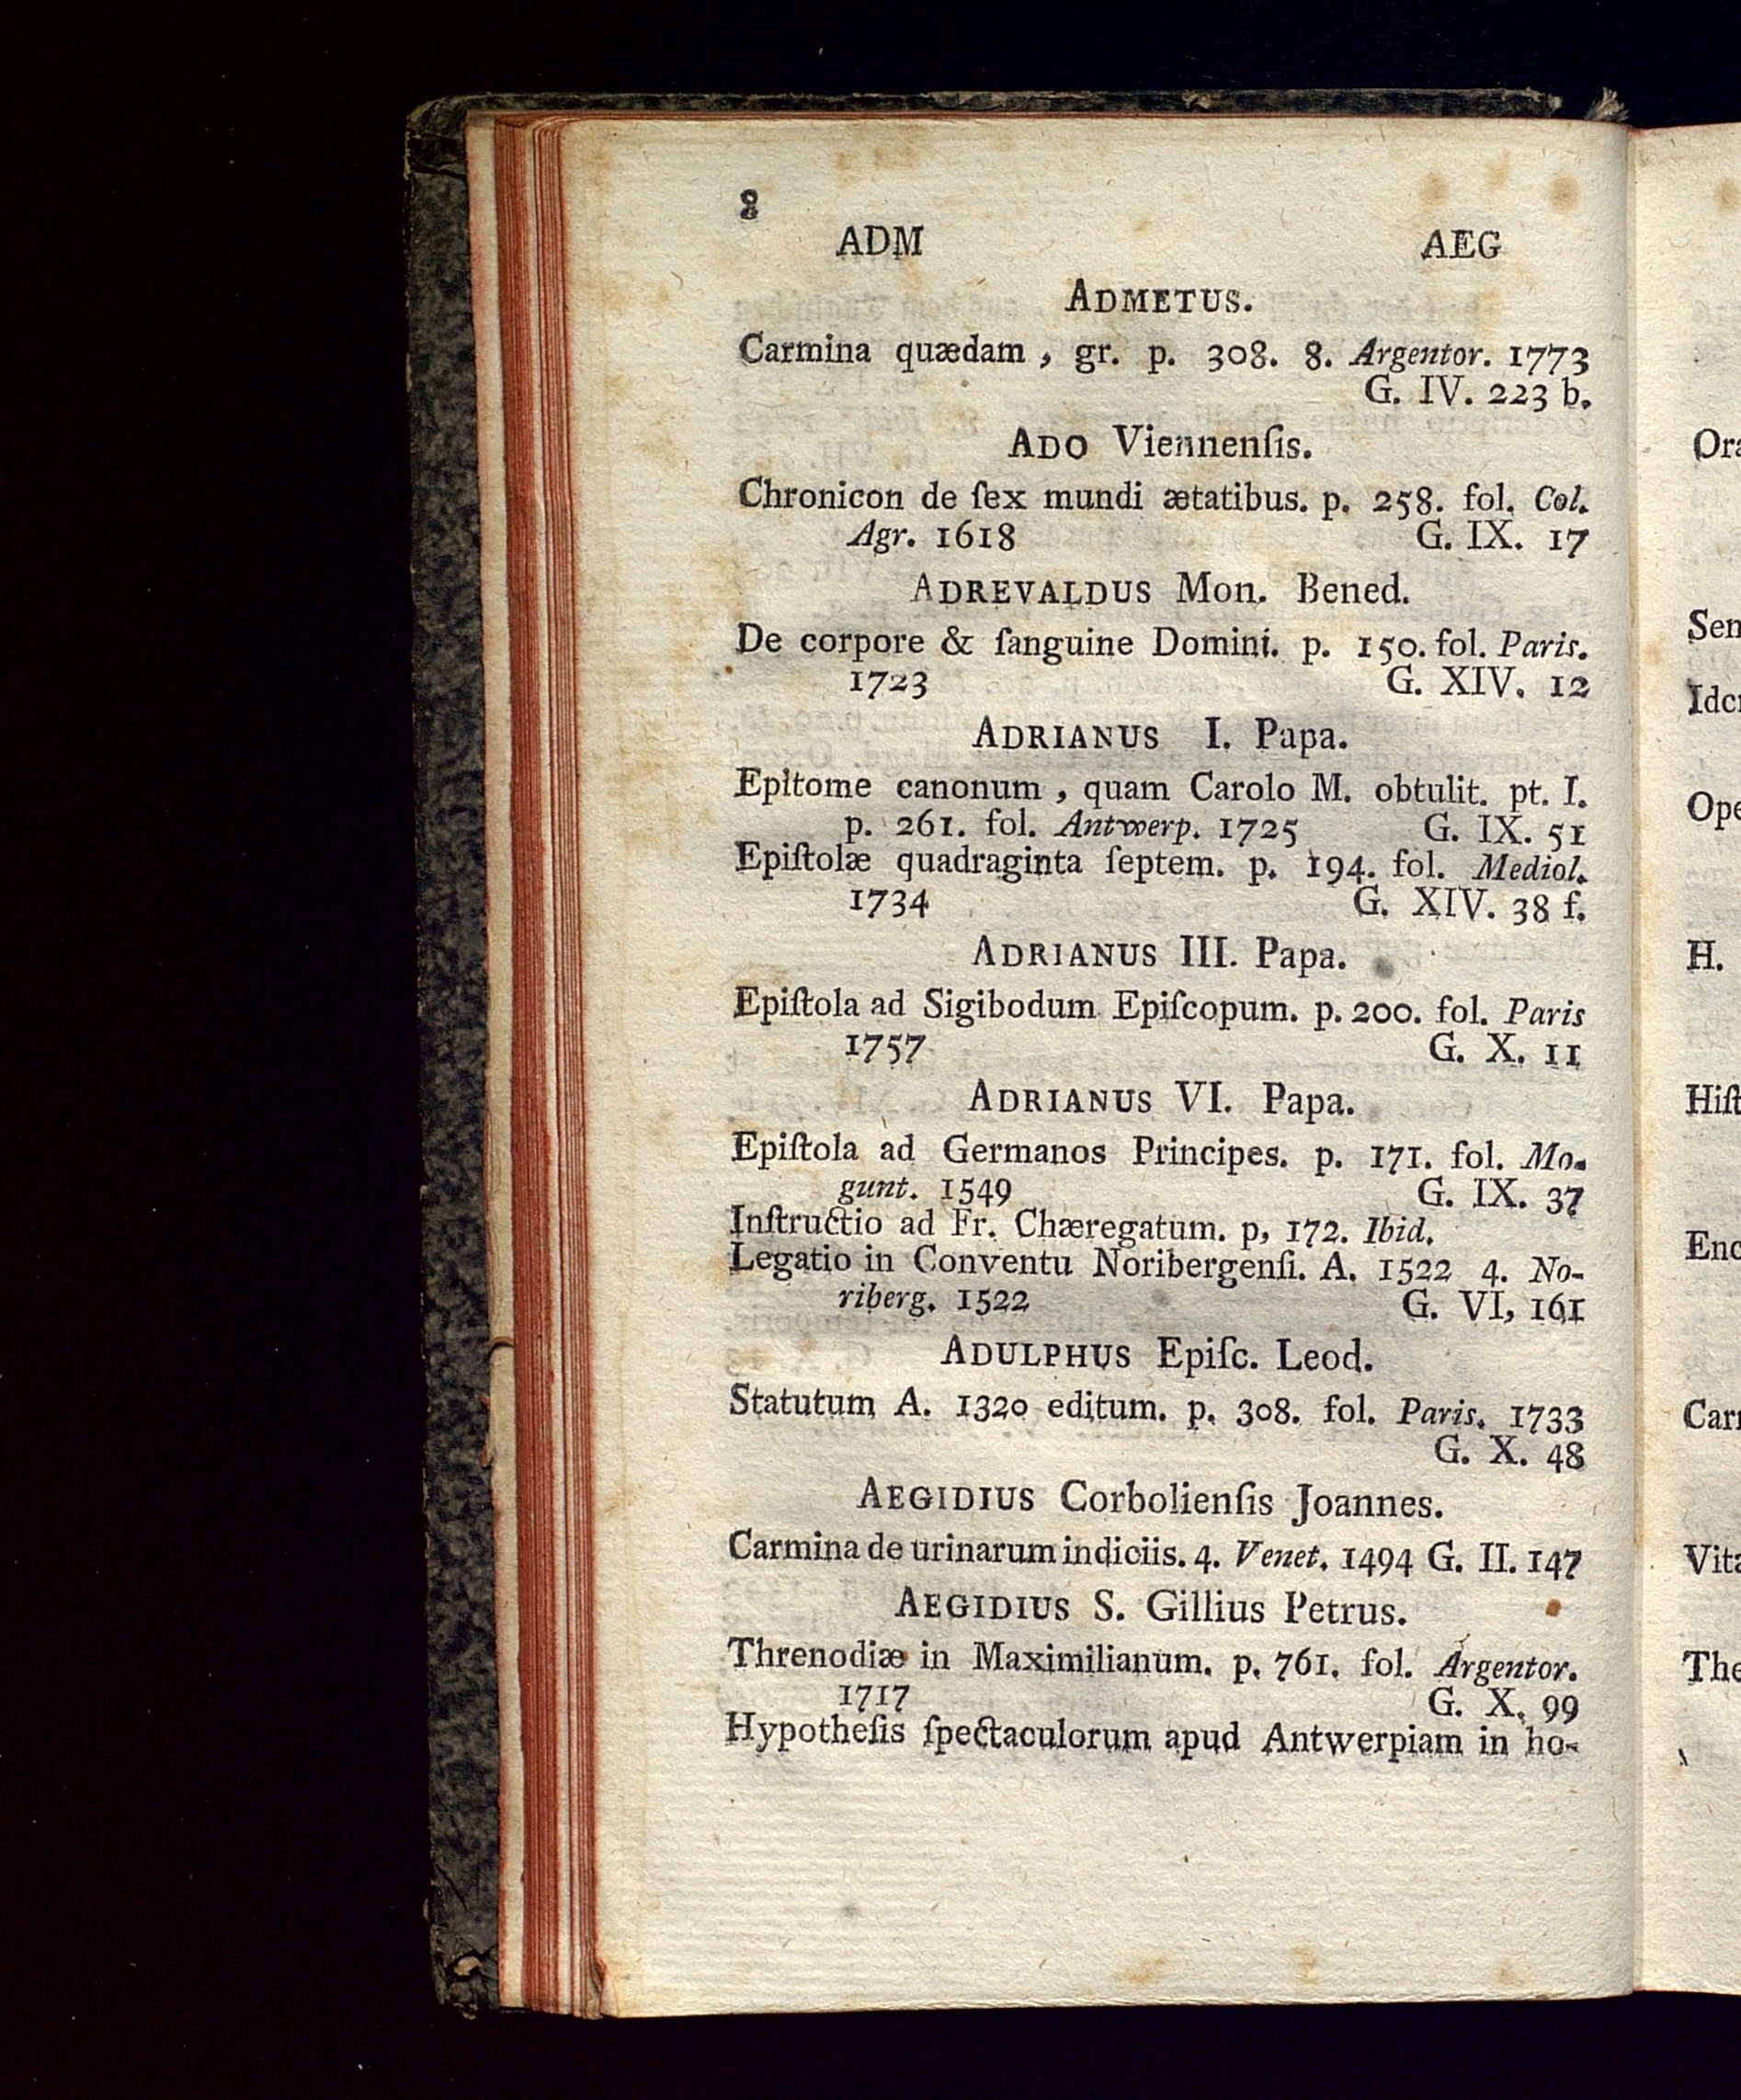 8
ADM AEG
ADMETUS.
Carmina quædam, gr. p. 308. 8. Argentor. 1773
G. IV. 223 b.
ADO Viennenſis.
Chronicon de ſex mundi ætatibus. p. 258. fol. Col.
Agr. 1618 G. IX. 17
ADREVALDUS Mon. Bened.
De corpore & ſanguine Domini. p. 150. fol. Paris.
1723 G. XIV. 12
ADRIANUS I. Papa.
Epitome canonum, quam Carolo M. obtulit. pt. I.
p. 261. fol. Antwerp. 1725 G. IX. 51
Epiſtolæ quadraginta ſeptem. p. 194. fol. Mediol.
1734 G. XIV. 38 f.
ADRIANUS III. Papa.
Epiſtola ad Sigibodum Epiſcopum. p. 200. fol. Paris
1757 G. X. 11
ADRIANUS VI. Papa.
Epiſtola ad Germanos Principes. p. 171. fol. Mo-
gunt. 1549 G. IX. 37
Inſtructio ad Fr. Chæregatum. p, 172. Ibid.
Legatio in Conventu Noribergenſi. A. 1522 4. No-
riberg. 1522 G. VI, 161
ADULPHUS Epiſc. Leod.
Statutum A. 1320 editum. p. 308. fol. Paris. 1733
G. X. 48
AEGIDIUS Corbolienſis Joannes.
Carmina de urinarum indiciis. 4. Venet. 1494 G. II. 147
AEGIDIUS S. Gillius Petrus.
Threnodiæ in Maximilianum. p. 761. fol. Argentor.
1717 G. X. 99
Hypotheſis ſpectaculorum apud Antwerpiam in ho-
Ora
Sen
Ope
H.
Hiſt
Enc
Vita
The